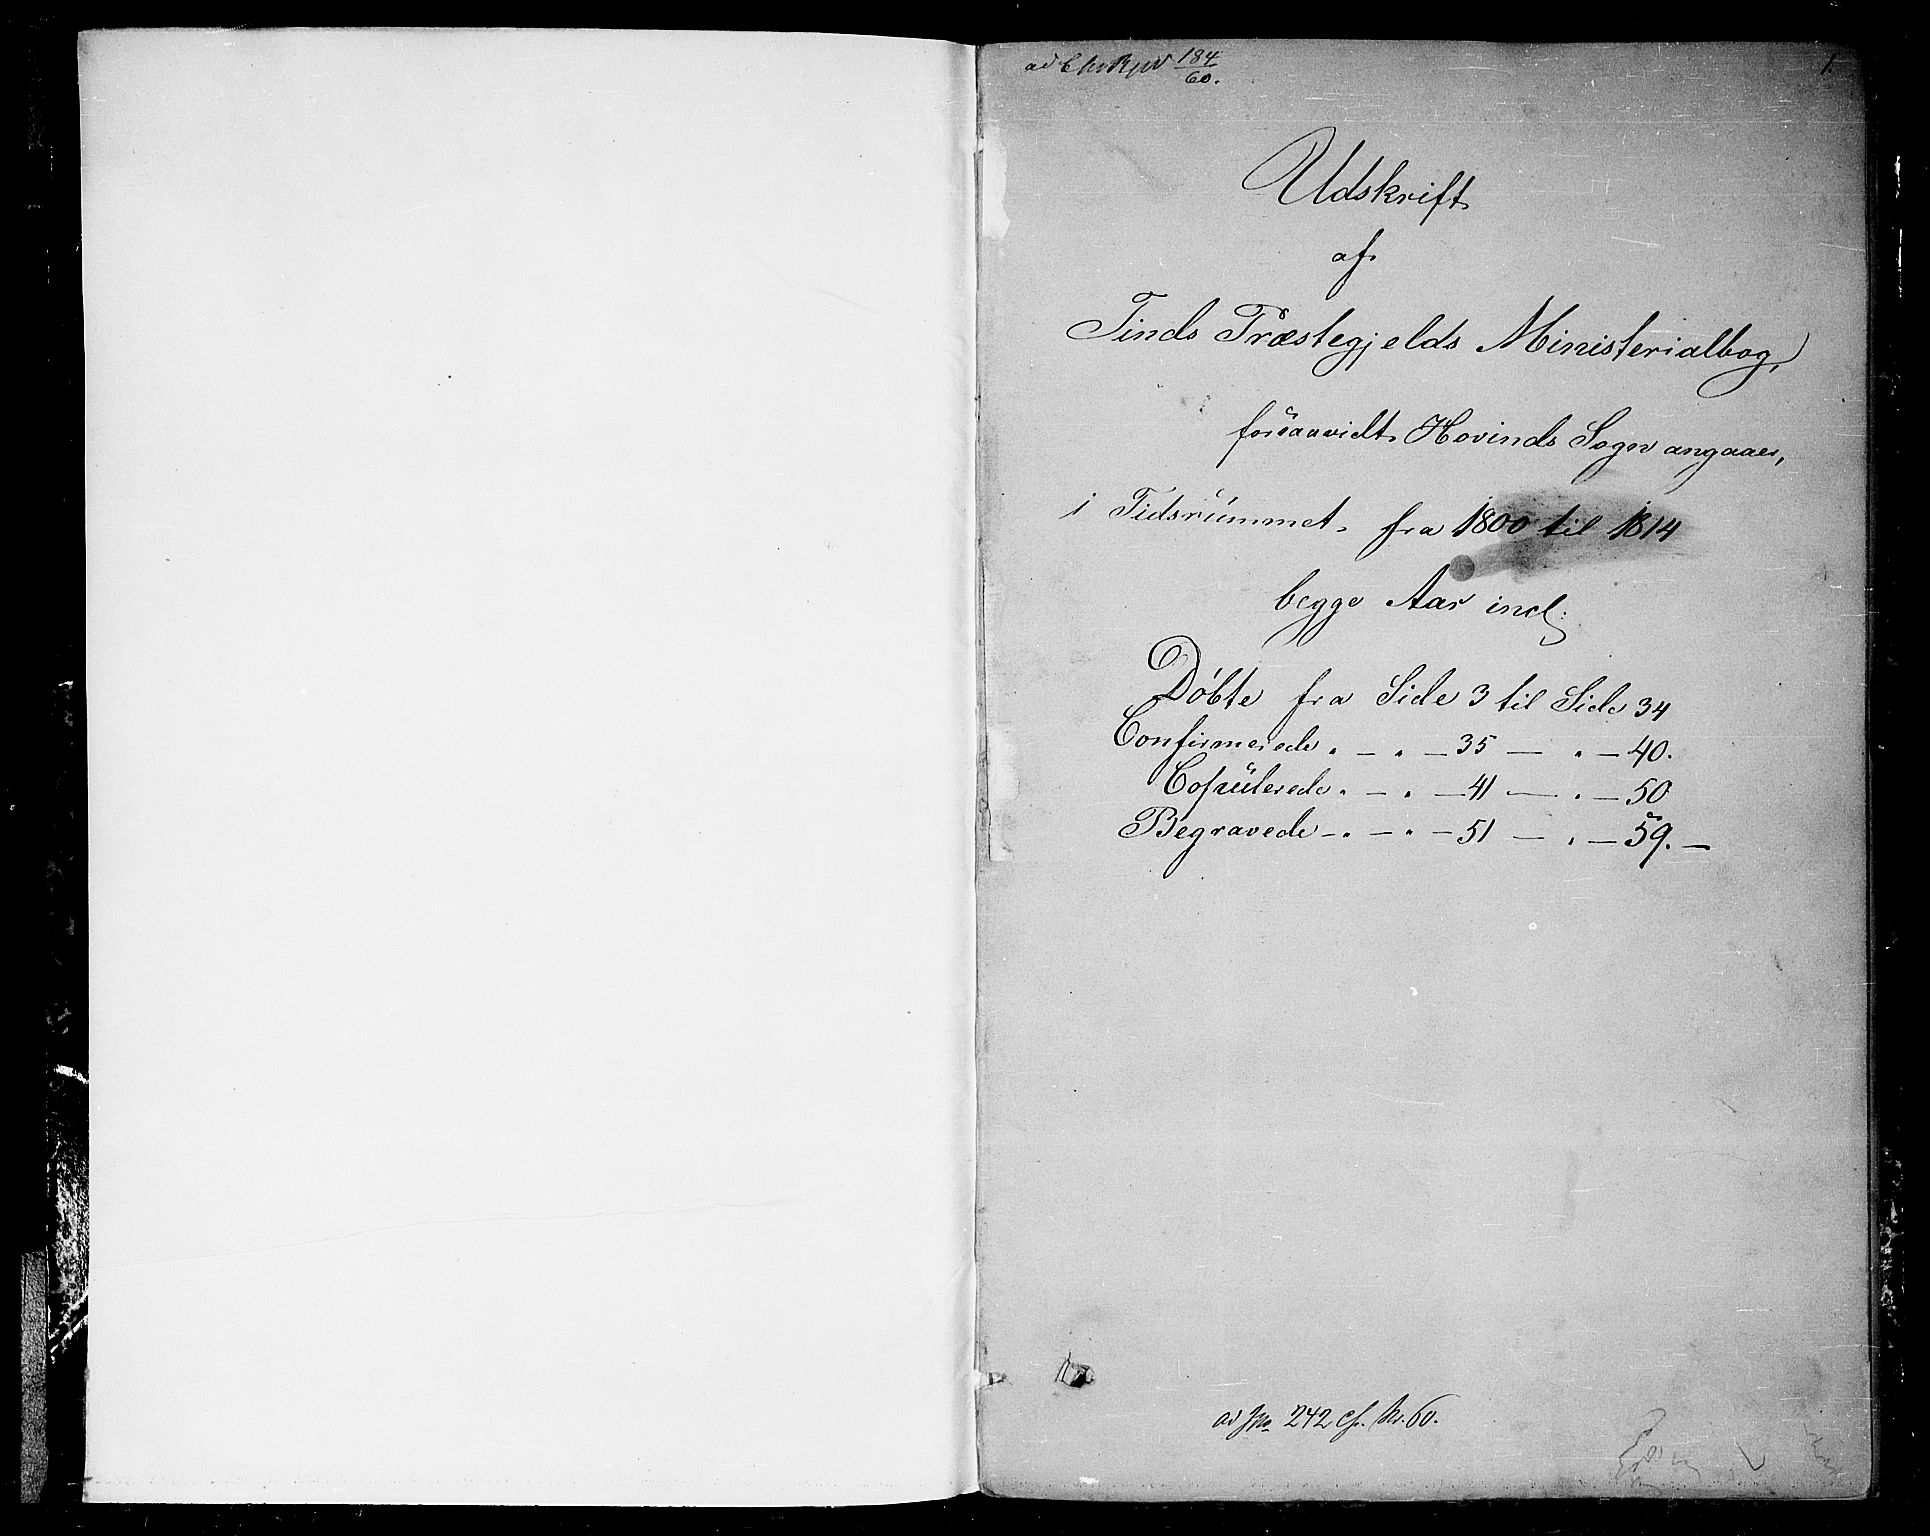 184
60.
1.
Udskrift
af
Tinds Præstegjelds Ministerialbog,
forsaavidt Hovinds Sogn angaaer,
i Tidsrummet fra 1800 til 1814
begge Aar incl:
Døbte fra Side 3 til Side 34
Confirmerede " — " — 35 — " — 40.
Copulerede " — " — 41 — " — 50
Begravede — " — " — 51 — " — 59. —
ad 242 60.